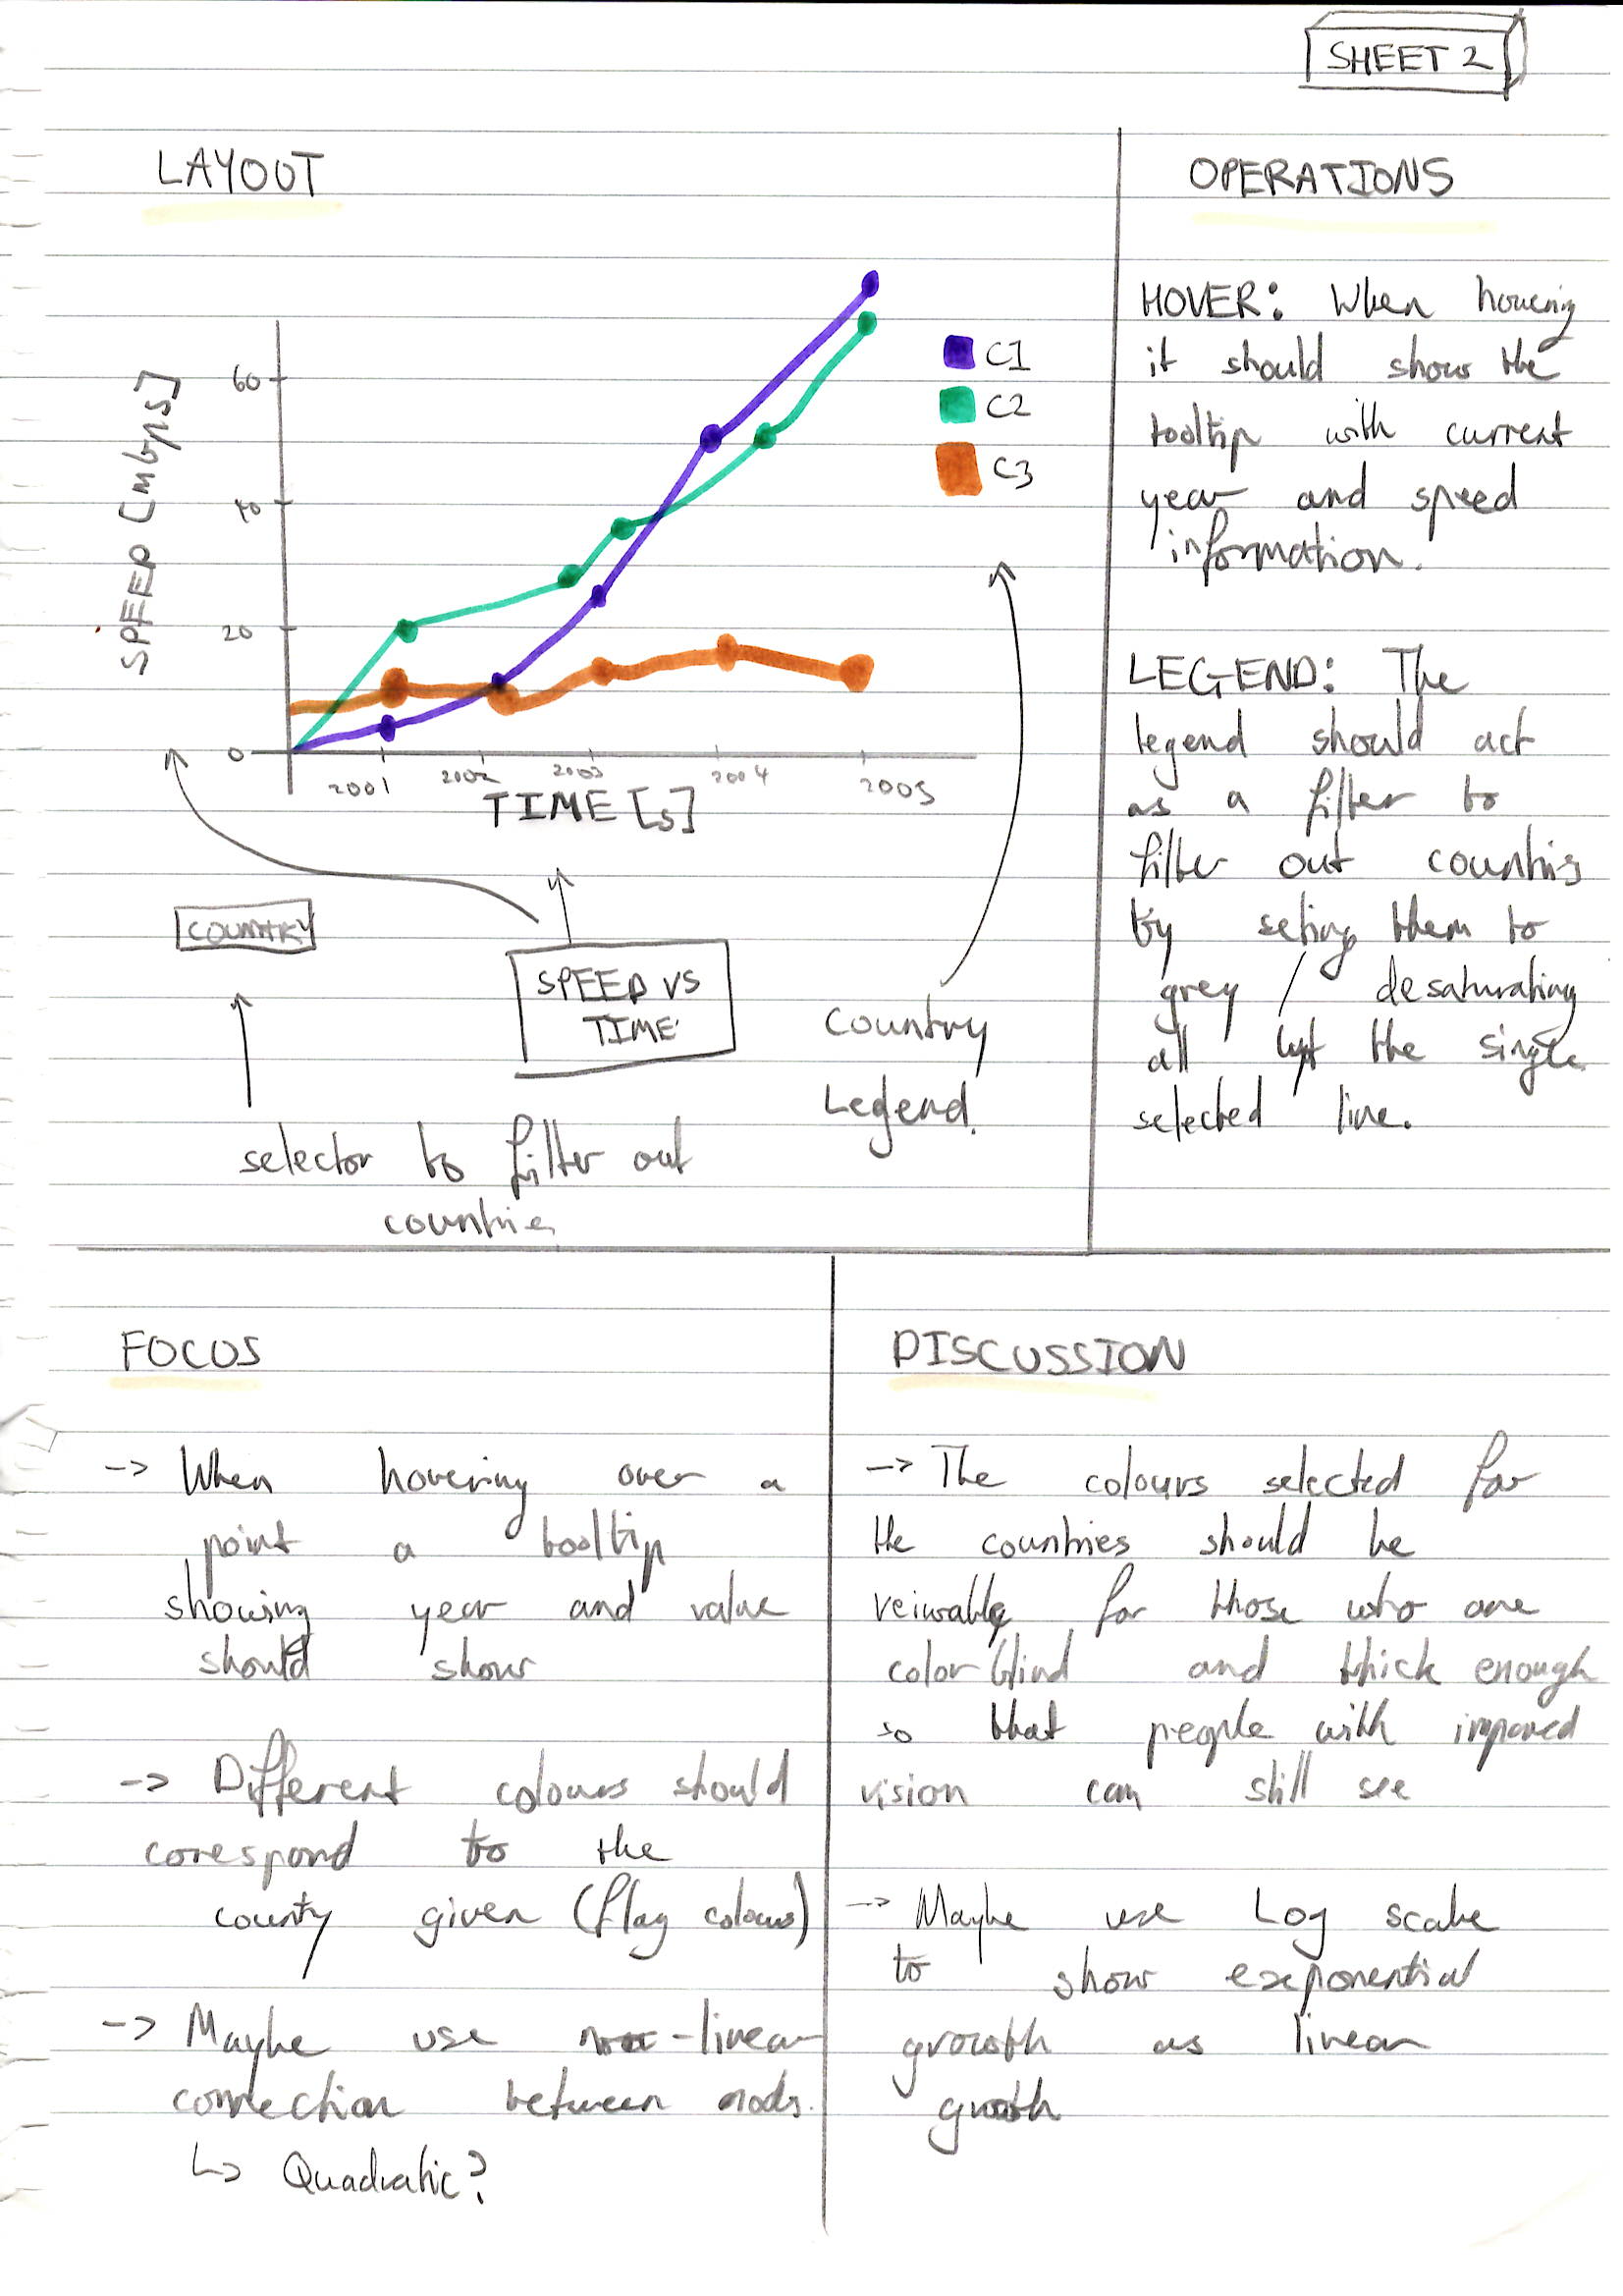 SHEET 2
LAYOUT
SPEED [mbps]
60
40
20
0
2001 2002 2003 2004 2005
TIME [s]
C1
C2
C3
COUNTRY
SPEED VS
TIME
Country
Legend.
selector to filter out
countries
OPERATIONS
HOVER: When hovering
it should show the
tooltip with current
year and speed
information.
LEGEND: The
legend should act
as a filter to
filter out countries
by seting them to
grey / desaturating
all but the single
selected line.
FOCUS
-> When hovering over a
point a tooltip
showing year and value
should show
-> Different colours should
correspond to the
county given (flag colours)
-> Maybe use non-linear
connection between nods.
↳ Quadratic?
DISCUSSION
-> The colours selected for
the countries should be
veiwable for those who are
color blind and thick enough
so that people with impared
vision can still see
-> Maybe use Log scale
to show exponential
growth as linear
growth